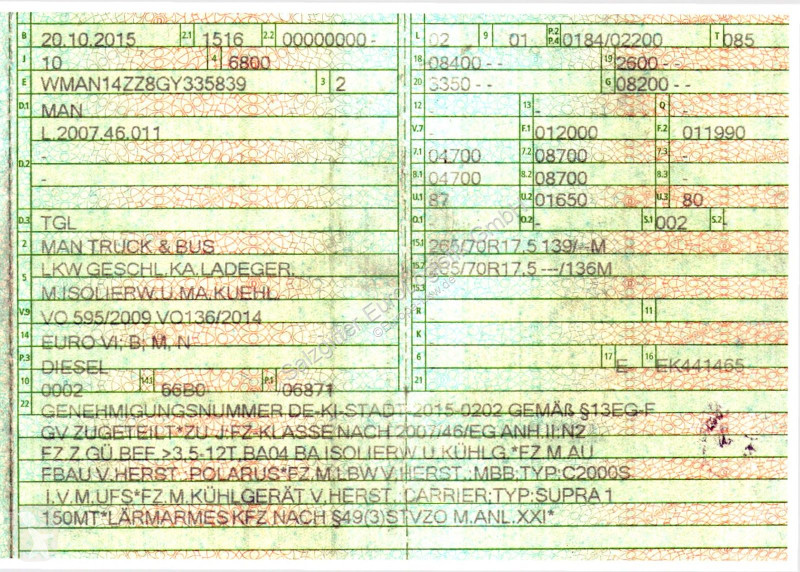 B 20.10.2015 2.1 1516 2.2 00000000 - L 02 9 01 P.2 P.4 0184/02200 T 085
J 10 4 6800 18 08400 - - 19 2600 - -
E WMAN14ZZ8GY335839 3 2 20 3350 - - G 08200 - -
D.1 MAN 12 - 13 - Q -
L.2007.46.011 V.7 - F.1 012000 F.2 011990
- 7.1 04700 7.2 08700 7.3 -
D.2 - 8.1 04700 8.2 08700 8.3 -
U.1 87 U.2 01650 U.3 80
D.3 TGL O.1 - O.2 - S.1 002 S.2 -
2 MAN TRUCK & BUS 15.1 265/70R17.5 139/--M
5 LKW GESCHL.KA.LADEGER. 15.2 265/70R17.5 ---/136M
M.ISOLIERW.U.MA.KUEHL 15.3 -
V.9 VO 595/2009 VO136/2014 R 11
14 EURO VI; B; M, N K
P.3 DIESEL 6 17 E 16 EK441465
10 0002 14.1 66B0 P.1 06871 21
22 GENEHMIGUNGSNUMMER DE-KI-STADT-2015-0202 GEMÄß §13EG-F
GV ZUGETEILT*ZU J:FZ-KLASSE NACH 2007/46/EG ANH.II:N2
FZ.Z.GÜ.BEF.>3,5-12T,BA04 BA ISOLIERW.U.KÜHLG.*FZ.M.AU
FBAU V.HERST.:POLARUS*FZ.M.LBW V.HERST.:MBB:TYP:C2000S
I.V.M.UFS*FZ.M.KÜHLGERÄT V.HERST. CARRIER;TYP:SUPRA 1
150MT*LÄRMARMES KFZ NACH §49(3)STVZO M.ANL.XXI*